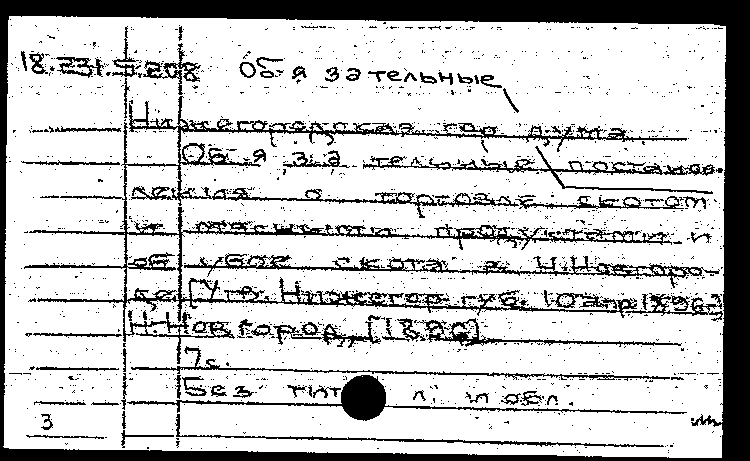 18.231.5.208 Обязательные
Нижегородская гор. дума.
Обязательные постанов-
ления о торговле скотом
и мясными продуктами и
об убое скота в Н.Новгоро-
де. [Утв. Нижегор. губ. 10 апр. 1896 г.]
Н-Новгород, [1896]
7 с.
Без тит. л. и обл.
3